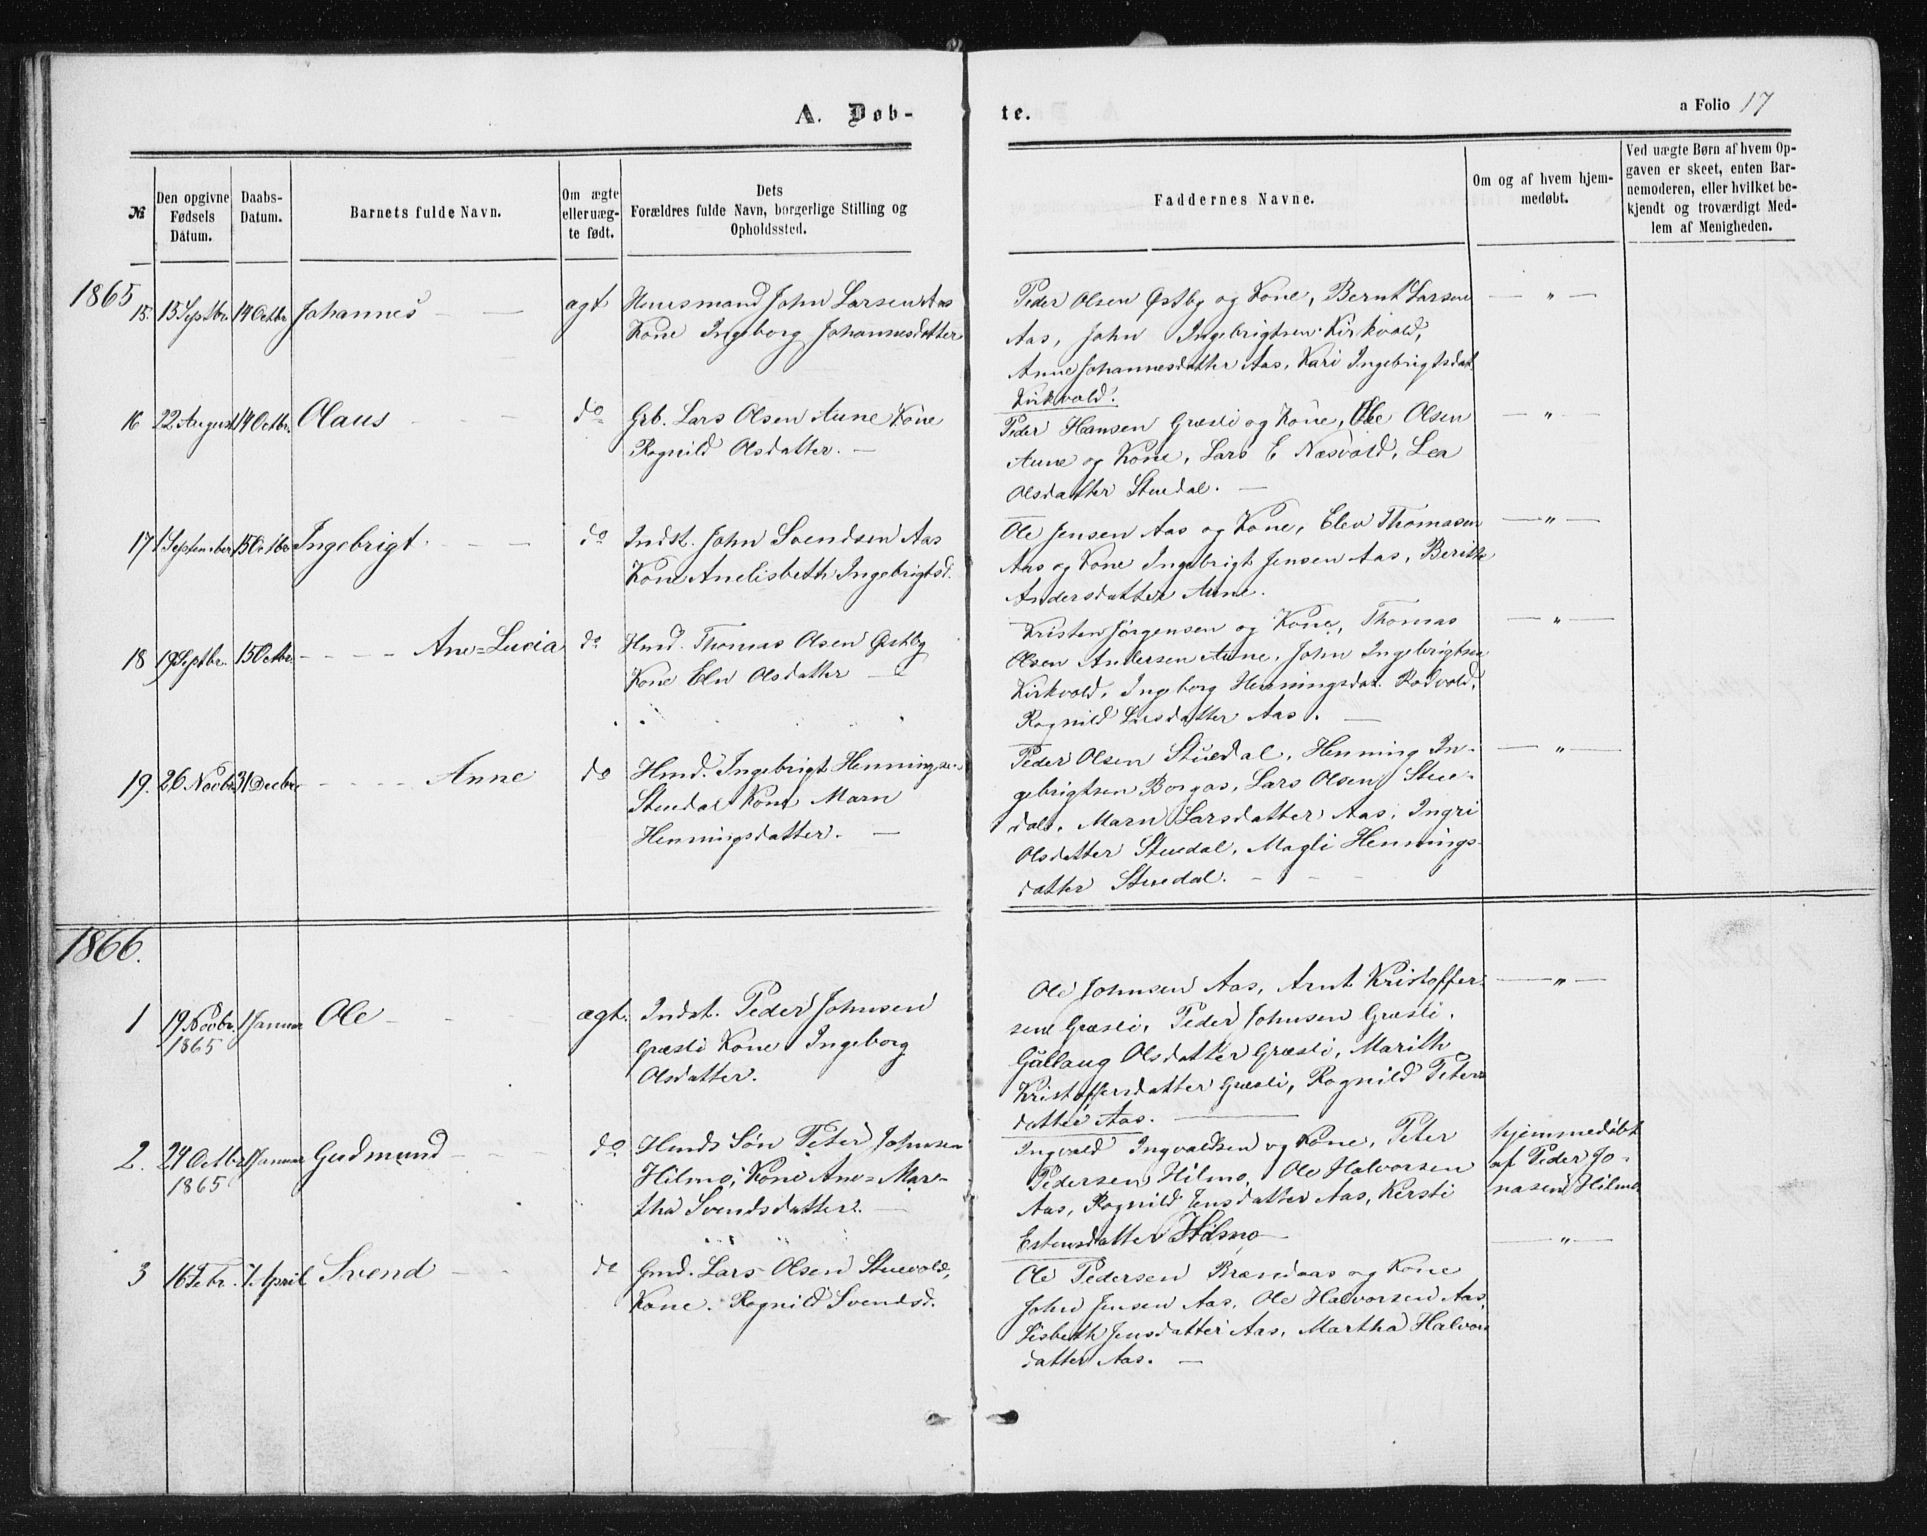 A. Døb-
te.
a Folio 17
№
Den opgivne Fødsels Datum.
Daabs-Datum.
Barnets fulde Navn.
Om ægte eller uæg-te født.
Dets
Forældres fulde Navn, borgerlige Stilling og
Opholdssted.
Faddernes Navne.
Om og af hvem hjem-
medøbt.
Ved uægte Børn af hvem Op-
gaven er skeet, enten Bar-
nemoderen, eller hvilket be-
kjendt og troværdigt Med-
lem af Menigheden.
1865
15. 15 Septbr. 14 Octbr. Johannes — ægt Huusmand John Larsen Aas
Kone Ingeborg Johannesdatter
Peder Olsen Østby og Kone, Bernt Larsen — " —
Aas, John Ingebrigtsen Kirkvold,
Anne Johannesdatter Aas, Kari Ingebrigtsdat
Kirkvold.
16 22 August 14 Octbr. Olaus - - do Grb. Lars Olsen Aune Kone
Rognild Olsdatter. —
Peder Hansen Græsli og Kone, Ole Olsen — " —
Aune og Kone, Lars E Næsvold, Lea
Olsdatter Stuedal. —
17 1 September 15 Octbr Ingebrigt. - - - do Indst. John Svendsen Aas
Kone Anelisbeth Ingebrigtsd.
Ole Jensen Aas og Kone, Elev Thomasen — " —
Aas og Kone Ingebrigt Jensen Aas, Berith
Andersdatter Aune.
18 19 Septbr. 15 Octbr. - - - - Ane=Lucia do Hmd. Thomas Olsen Østby
Kone Eln Olsdatter —
Kristen Jørgensen og Kone, Thomas — " —
Olsen Andersen Aune, John Ingebrigtsen
Kirkvold, Ingeborg Henningsdat. Rodvold,
Rognild Larsdatter Aas. —
19. 26 Novbr. 31 Decbr. - - - - Anne do Hmd. Ingebrigt Henningsen
Stuedal Kone Marn
Henningsdatter. —
Peder Olsen Stuedal, Henning In- — " —
gebrigtsen Borgas, Lars Olsen Stue-
dal, Marn Larsdatter Aas, Ingri
Olsdatter Stuedal, Magli Hennings-
datter Stuedal. - - -
1866.
1 19 Novbr. 1865 1 Januar Ole - - ægt. Indst. Peder Johnsen
Græsli Kone Ingeborg
Olsdatter.
Ole Johnsen Aas, Arnt Kristoffer- — " —
sen Græsli, Peder Johnsen Græsli,
Gullaug Olsdatter Græsli, Marith
Kristoffersdatter Græsli, Rognild Peters
datter Aas. —
2. 24 Octbr. 1865 1 Januar Gudmund - - - do Hmds Søn Peter Johnsen
Hilmo, Kone Ane=Mar-
tha Svendsdatter. —
Ingvald Ingvaldsen og Kone, Peter
Pedersen Hilmo, Ole Halvorsen
Aas, Rognild Jensdatter Aas, Kersti
Estensdatter Hilmo —
hjemmedøbt
af Peder Jo-
nasen Hilmo
3 16 Febr. 1. April Svend - - do Gmd. Lars Olsen Stuevold,
Kone. Rognild Svendsd.
Ole Pedersen Brændaas og Kone — " —
John Jensen Aas, Ole Halvorsen Aas,
Lisbeth Jensdatter Aas, Martha Halvors
datter Aas. —